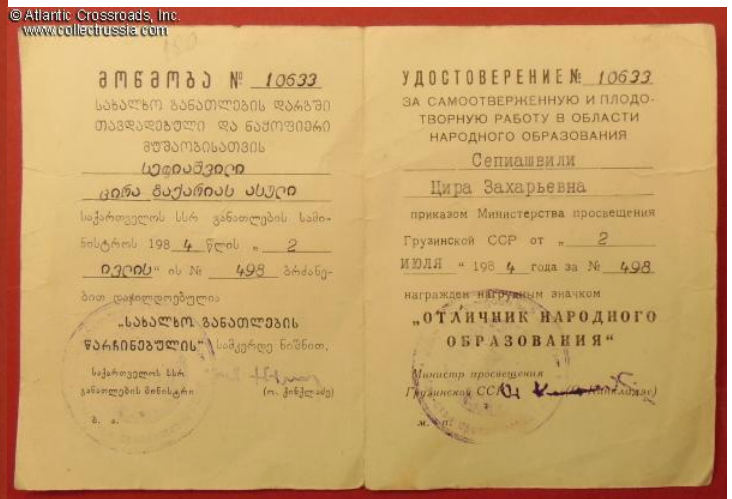 © Atlantic Crossroads, Inc.
www.collectrussia.com
მოწმობა № 10633
სახალხო განათლების დარგში
თავდადებული და ნაყოფიერი
მუშაობისათვის
სეფიაშვილი
ცირა ზაქარიას ასული
საქართველოს სსრ განათლების სამი-
ნისტროს 198 4 წლის „ 2
ივლის“ ის № 498 ბრძანე-
ბით დაჯილდოებულია
„სახალხო განათლების
წარჩინებულის“ სამკერდე ნიშნით.
საქართველოს სსრ
განათლების მინისტრი (ო. ქინქლაძე)
ბ. ა.
УДОСТОВЕРЕНИЕ № 10633
ЗА САМООТВЕРЖЕННУЮ И ПЛОДО-
ТВОРНУЮ РАБОТУ В ОБЛАСТИ
НАРОДНОГО ОБРАЗОВАНИЯ
Сепиашвили
Цира Захарьевна
приказом Министерства просвещения
Грузинской ССР от „ 2
ИЮЛЯ “ 198 4 года за № 498
награжден нагрудным значком
„ОТЛИЧНИК НАРОДНОГО
ОБРАЗОВАНИЯ“
Министр просвещения
Грузинской ССР
м. п.